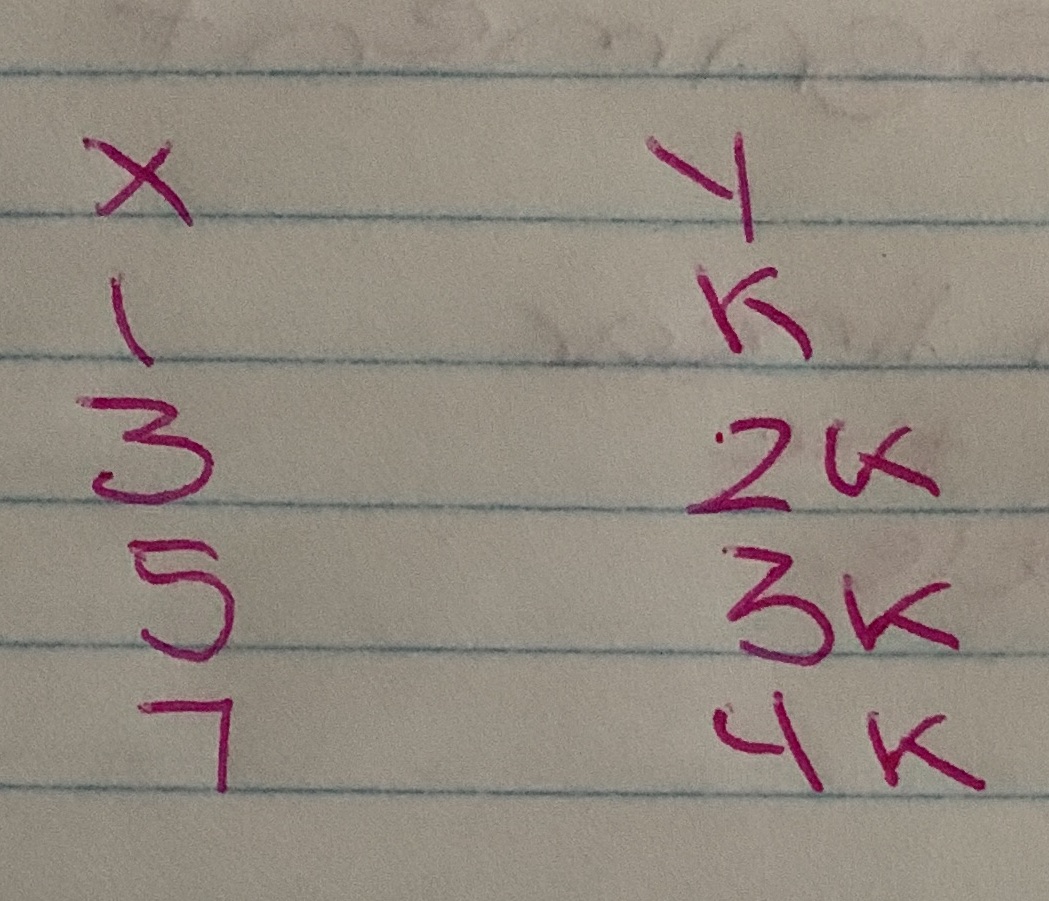 X Y
1 K
3 2K
5 3K
7 4K